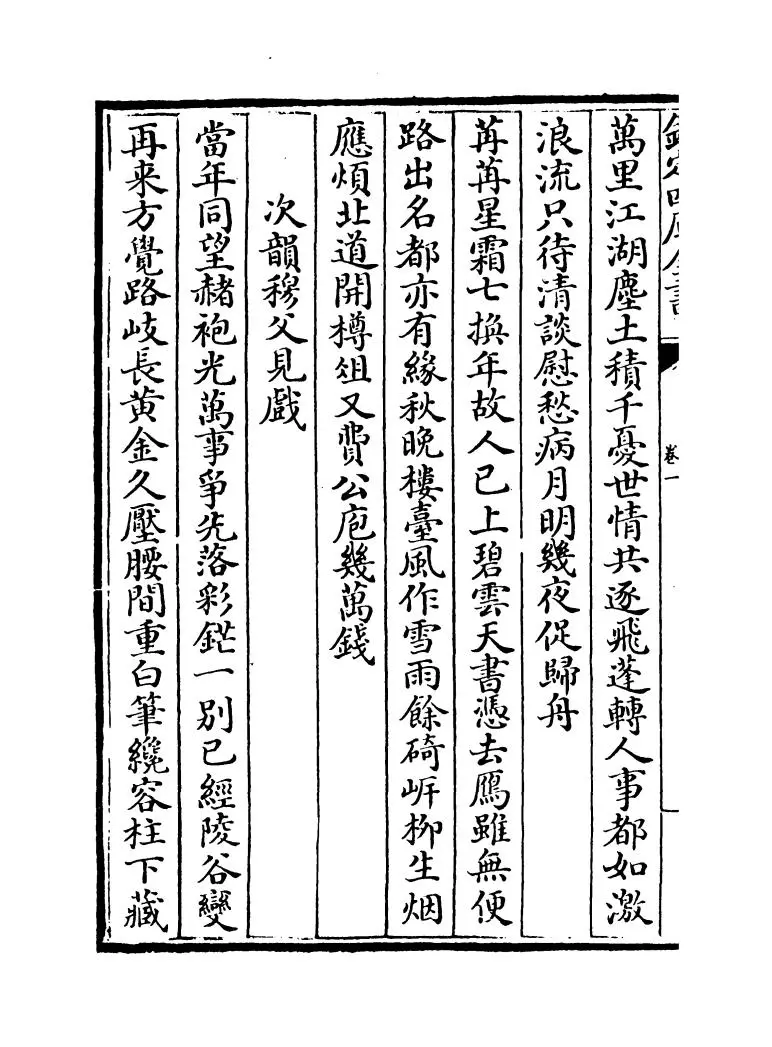 萬里江湖塵土積千憂世情共逐飛蓬轉人事都如激
浪流只待清談慰愁病月明幾夜促歸舟
苒苒星霜七換年故人已上碧雲天書憑去鴈雖無便
路出名都亦有緣秋晚樓臺風作雪雨餘碕㟁柳生烟
應煩北道開樽俎又費公庖幾萬錢
次韻穆父見戲
當年同望赭袍光萬事爭先落彩鋩一別已經陵谷變
再来方覺路岐長黄金久壓腰間重白筆纔容柱下藏
卷一